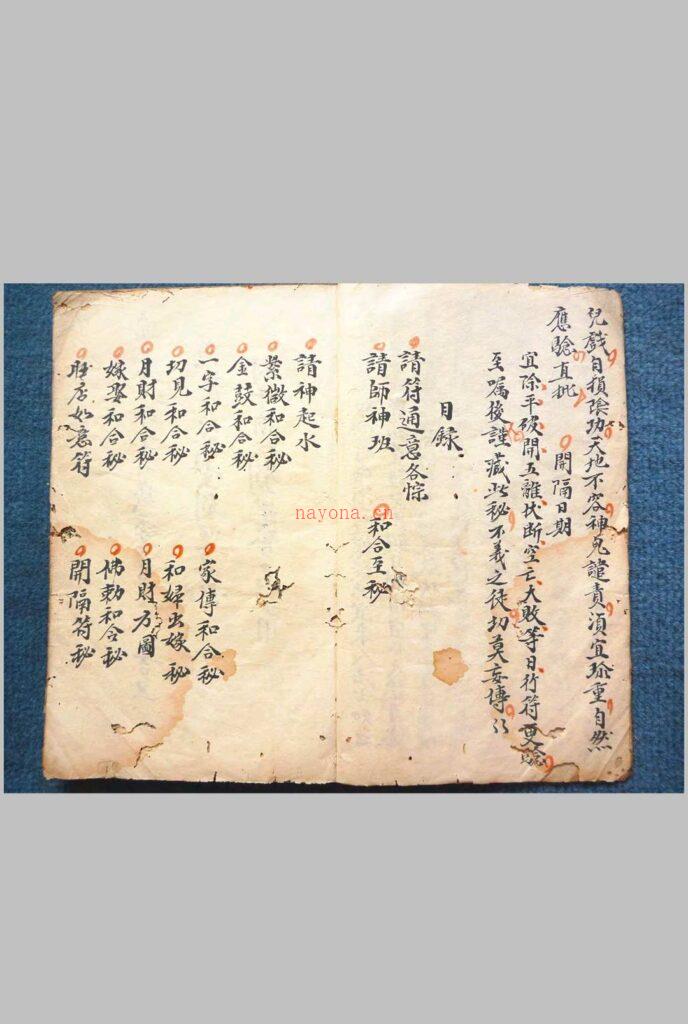 兒戲自積陰功天地不容神鬼譴責須宜珍重自然
應驗直批 開隔日期
宜除平破開五離伏斷空亡大敗等日行符更驗
至囑後謹藏此秘不義之徒切莫妄傳
目錄
請符通意各悰
請師神班 和合至秘
請神起水
紫微和合秘
金鼓和合秘
一字和合秘 家傳和合秘
切見和合秘 和婦出嫁秘
月財和合秘 月財方圖
嫁娶和合秘 佛勅和合秘
店如意符 開隔符秘
nayona.cn